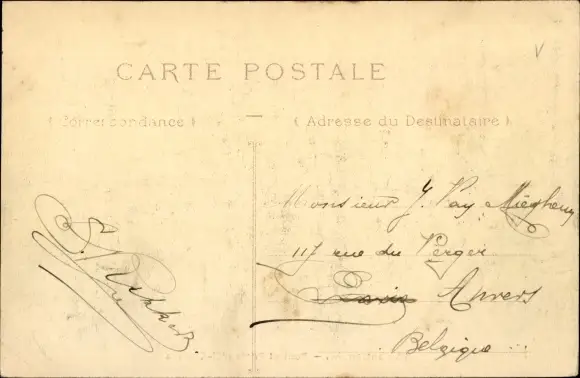 CARTE POSTALE
( Correspondance )
( Adresse du Destinataire )
Monsieur J. Van Mieghem
117 rue du Verger
Anvers
Belgique ...